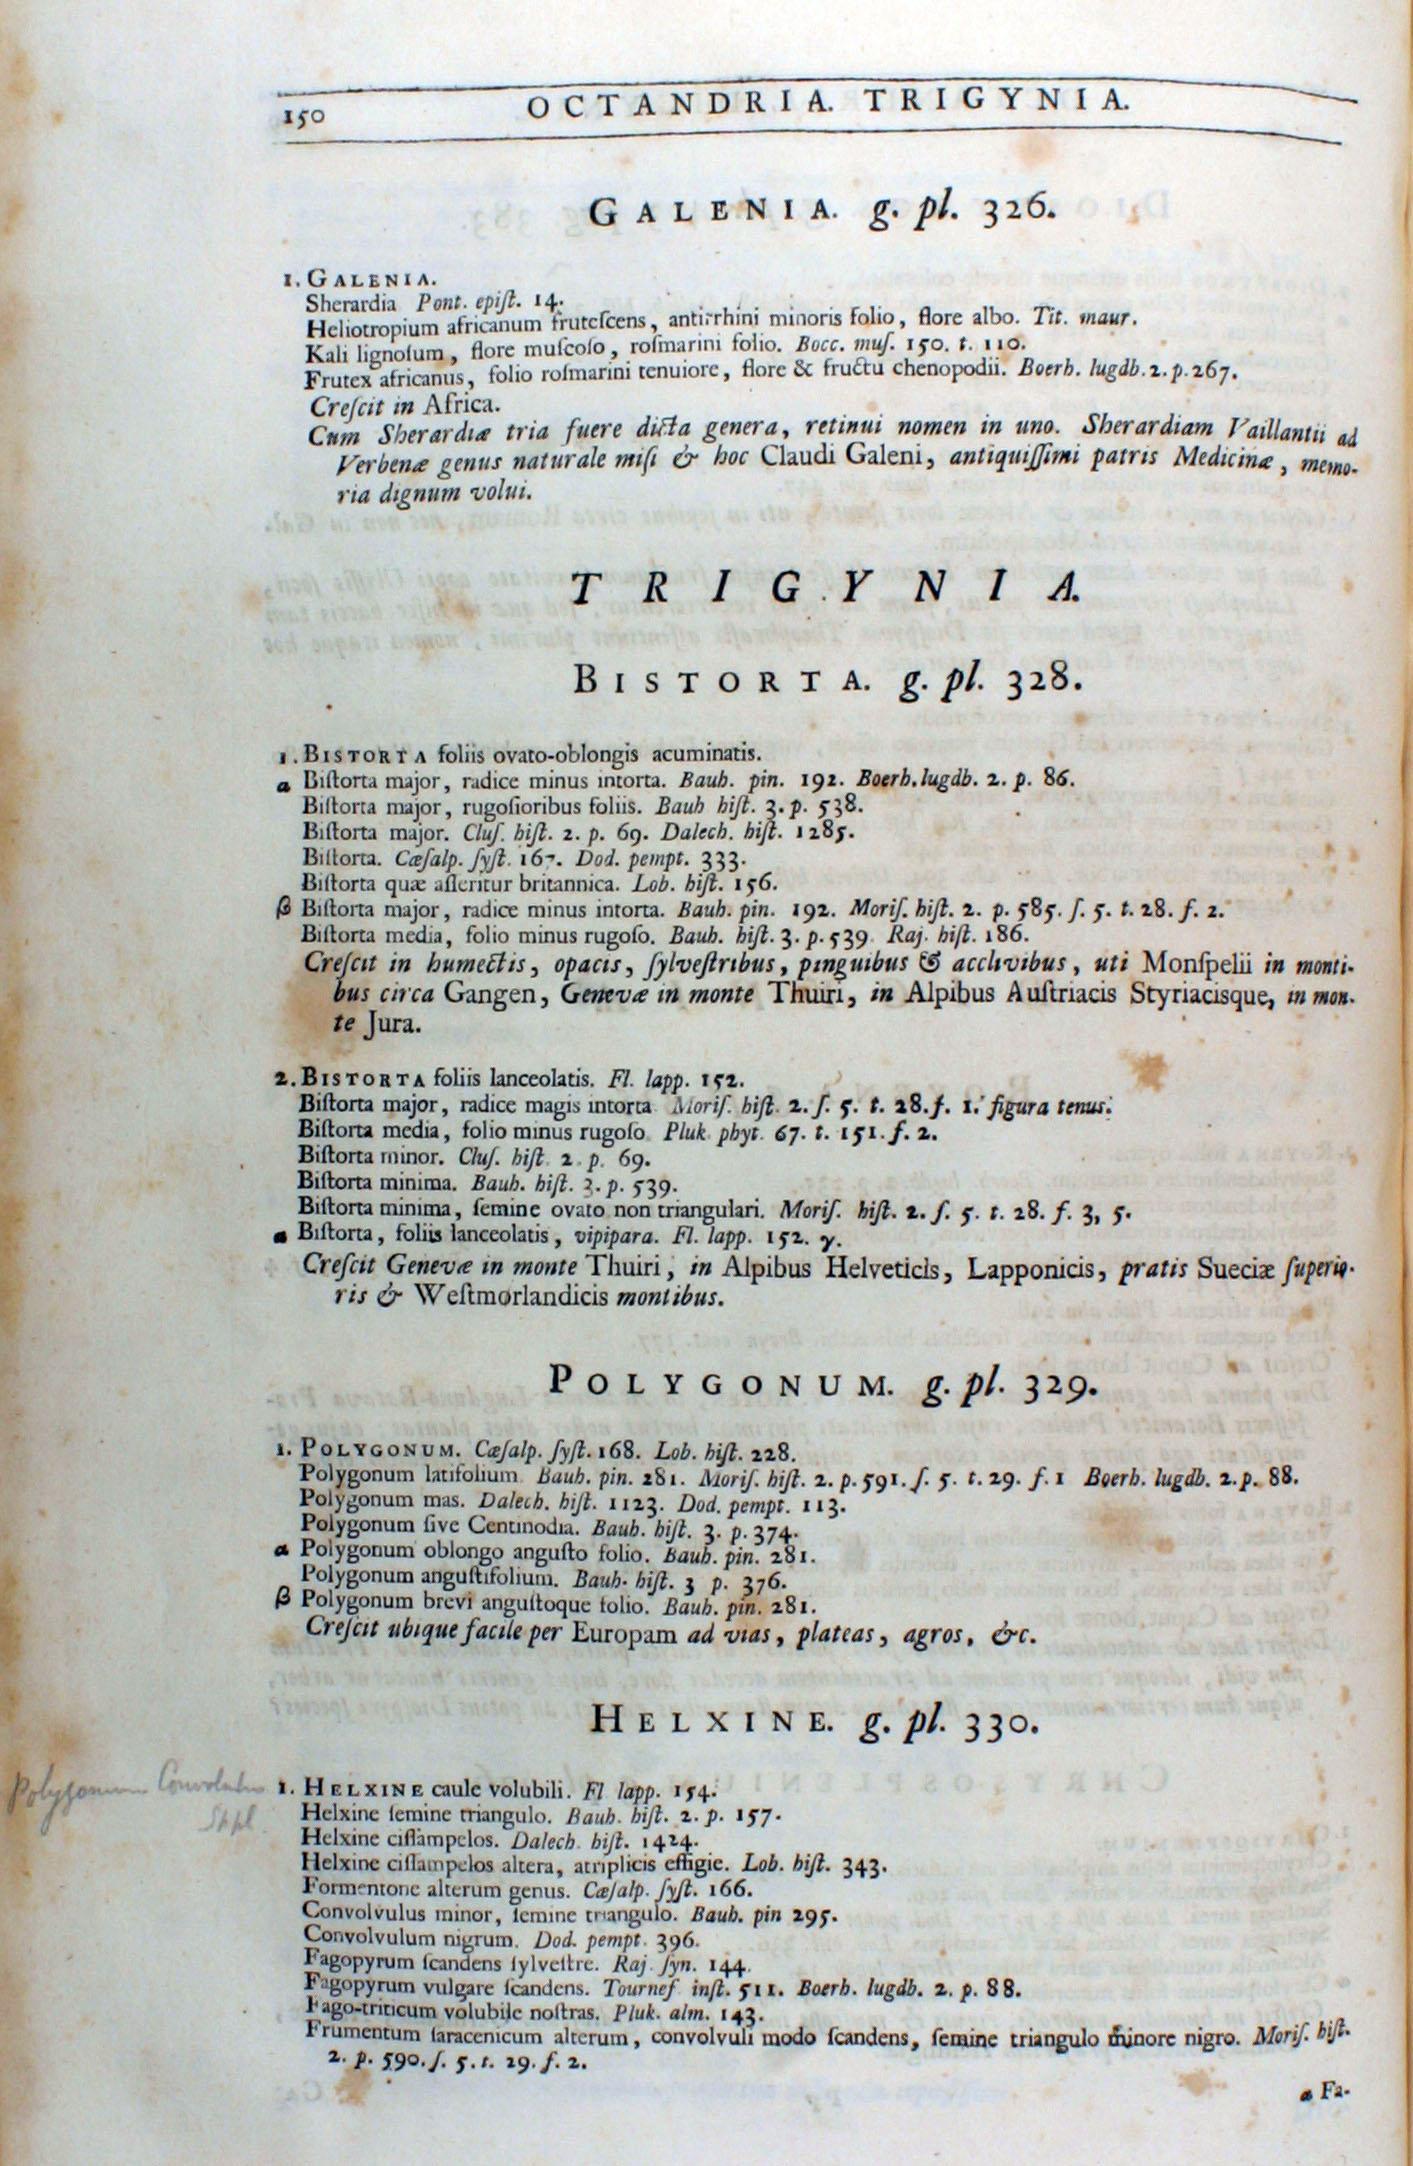 150 OCTANDRIA. TRIGYNIA.
GALENIA. g. pl. 326.
1. GALENIA.
Sherardia Pont. epiſt. 14.
Heliotropium africanum fruteſcens, antirrhini minoris folio, flore albo. Tit. maur.
Kali lignoſum, flore muſcoſo, roſmarini folio. Bocc. muſ. 150. t. 110.
Frutex africanus, folio roſmarini tenuiore, flore & fructu chenopodii. Boerh. lugdb. 2. p. 267.
Creſcit in Africa.
Cum Sherardiæ tria fuere dicta genera, retinui nomen in uno. Sherardiam Vaillantii ad
Verbenæ genus naturale miſi & hoc Claudi Galeni, antiquiſſimi patris Medicinæ, memo-
ria dignum volui.
TRIGYNIA.
BISTORTA. g. pl. 328.
1. BISTORTA foliis ovato-oblongis acuminatis.
α Biſtorta major, radice minus intorta. Bauh. pin. 192. Boerh. lugdb. 2. p. 86.
Biſtorta major, rugoſioribus foliis. Bauh hiſt. 3. p. 538.
Biſtorta major. Cluſ. hiſt. 2. p. 69. Dalech. hiſt. 1285.
Biſtorta. Cæſalp. ſyſt. 167. Dod. pempt. 333.
Biſtorta quæ aſſeritur britannica. Lob. hiſt. 156.
β Biſtorta major, radice minus intorta. Bauh. pin. 192. Moriſ. hiſt. 2. p. 585. ſ. 5. t. 28. f. 2.
Biſtorta media, folio minus rugoſo. Bauh. hiſt. 3. p. 539. Raj. hiſt. 186.
Creſcit in humectis, opacis, ſylveſtribus, pinguibus & acclivibus, uti Monſpelii in monti-
bus circa Gangen, Genevæ in monte Thuiri, in Alpibus Auſtriacis Styriacisque, in mon-
te Jura.
2. BISTORTA foliis lanceolatis. Fl. lapp. 152.
Biſtorta major, radice magis intorta Moriſ. hiſt. 2. ſ. 5. t. 28. f. 1. figura tenus.
Biſtorta media, folio minus rugoſo. Pluk. phyt. 67. t. 151. f. 2.
Biſtorta minor. Cluſ. hiſt. 2. p. 69.
Biſtorta minima. Bauh. hiſt. 3. p. 539.
Biſtorta minima, ſemine ovato non triangulari. Moriſ. hiſt. 2. ſ. 5. t. 28. f. 3, 5.
α Biſtorta, foliis lanceolatis, vipipara. Fl. lapp. 152. γ.
Creſcit Genevæ in monte Thuiri, in Alpibus Helveticis, Lapponicis, pratis Sueciæ ſuperio-
ris & Weſtmorlandicis montibus.
POLYGONUM. g. pl. 329.
1. POLYGONUM. Cæſalp. ſyſt. 168. Lob. hiſt. 228.
Polygonum latifolium Bauh. pin. 281. Moriſ. hiſt. 2. p. 591. ſ. 5. t. 29. f. 1 Boerh. lugdb. 2. p. 88.
Polygonum mas. Dalech. hiſt. 1123. Dod. pempt. 113.
Polygonum ſive Centinodia. Bauh. hiſt. 3. p. 374.
α Polygonum oblongo anguſto folio. Bauh. pin. 281.
Polygonum anguſtifolium. Bauh. hiſt. 3 p. 376.
β Polygonum brevi anguſtoque folio. Bauh. pin. 281.
Creſcit ubique facile per Europam ad vias, plateas, agros, &c.
HELXINE. g. pl. 330.
Polygonum Convolvulus
1. HELXINE caule volubili. Fl lapp. 154.
Helxine ſemine triangulo. Bauh. hiſt. 2. p. 157.
Helxine ciſſampelos. Dalech. hiſt. 1424.
Helxine ciſſampelos altera, atriplicis effigie. Lob. hiſt. 343.
Formentone alterum genus. Cæſalp. ſyſt. 166.
Convolvulus minor, ſemine triangulo. Bauh. pin 295.
Convolvulum nigrum. Dod. pempt. 396.
Fagopyrum ſcandens ſylveſtre. Raj. ſyn. 144.
Fagopyrum vulgare ſcandens. Tournef inſt. 511. Boerh. lugdb. 2. p. 88.
Fago-triticum volubile noſtras. Pluk. alm. 143.
Frumentum ſaracenicum alterum, convolvuli modo ſcandens, ſemine triangulo minore nigro. Moriſ. hiſt.
2. p. 590. ſ. 5. t. 29. f. 2.
α Fa-